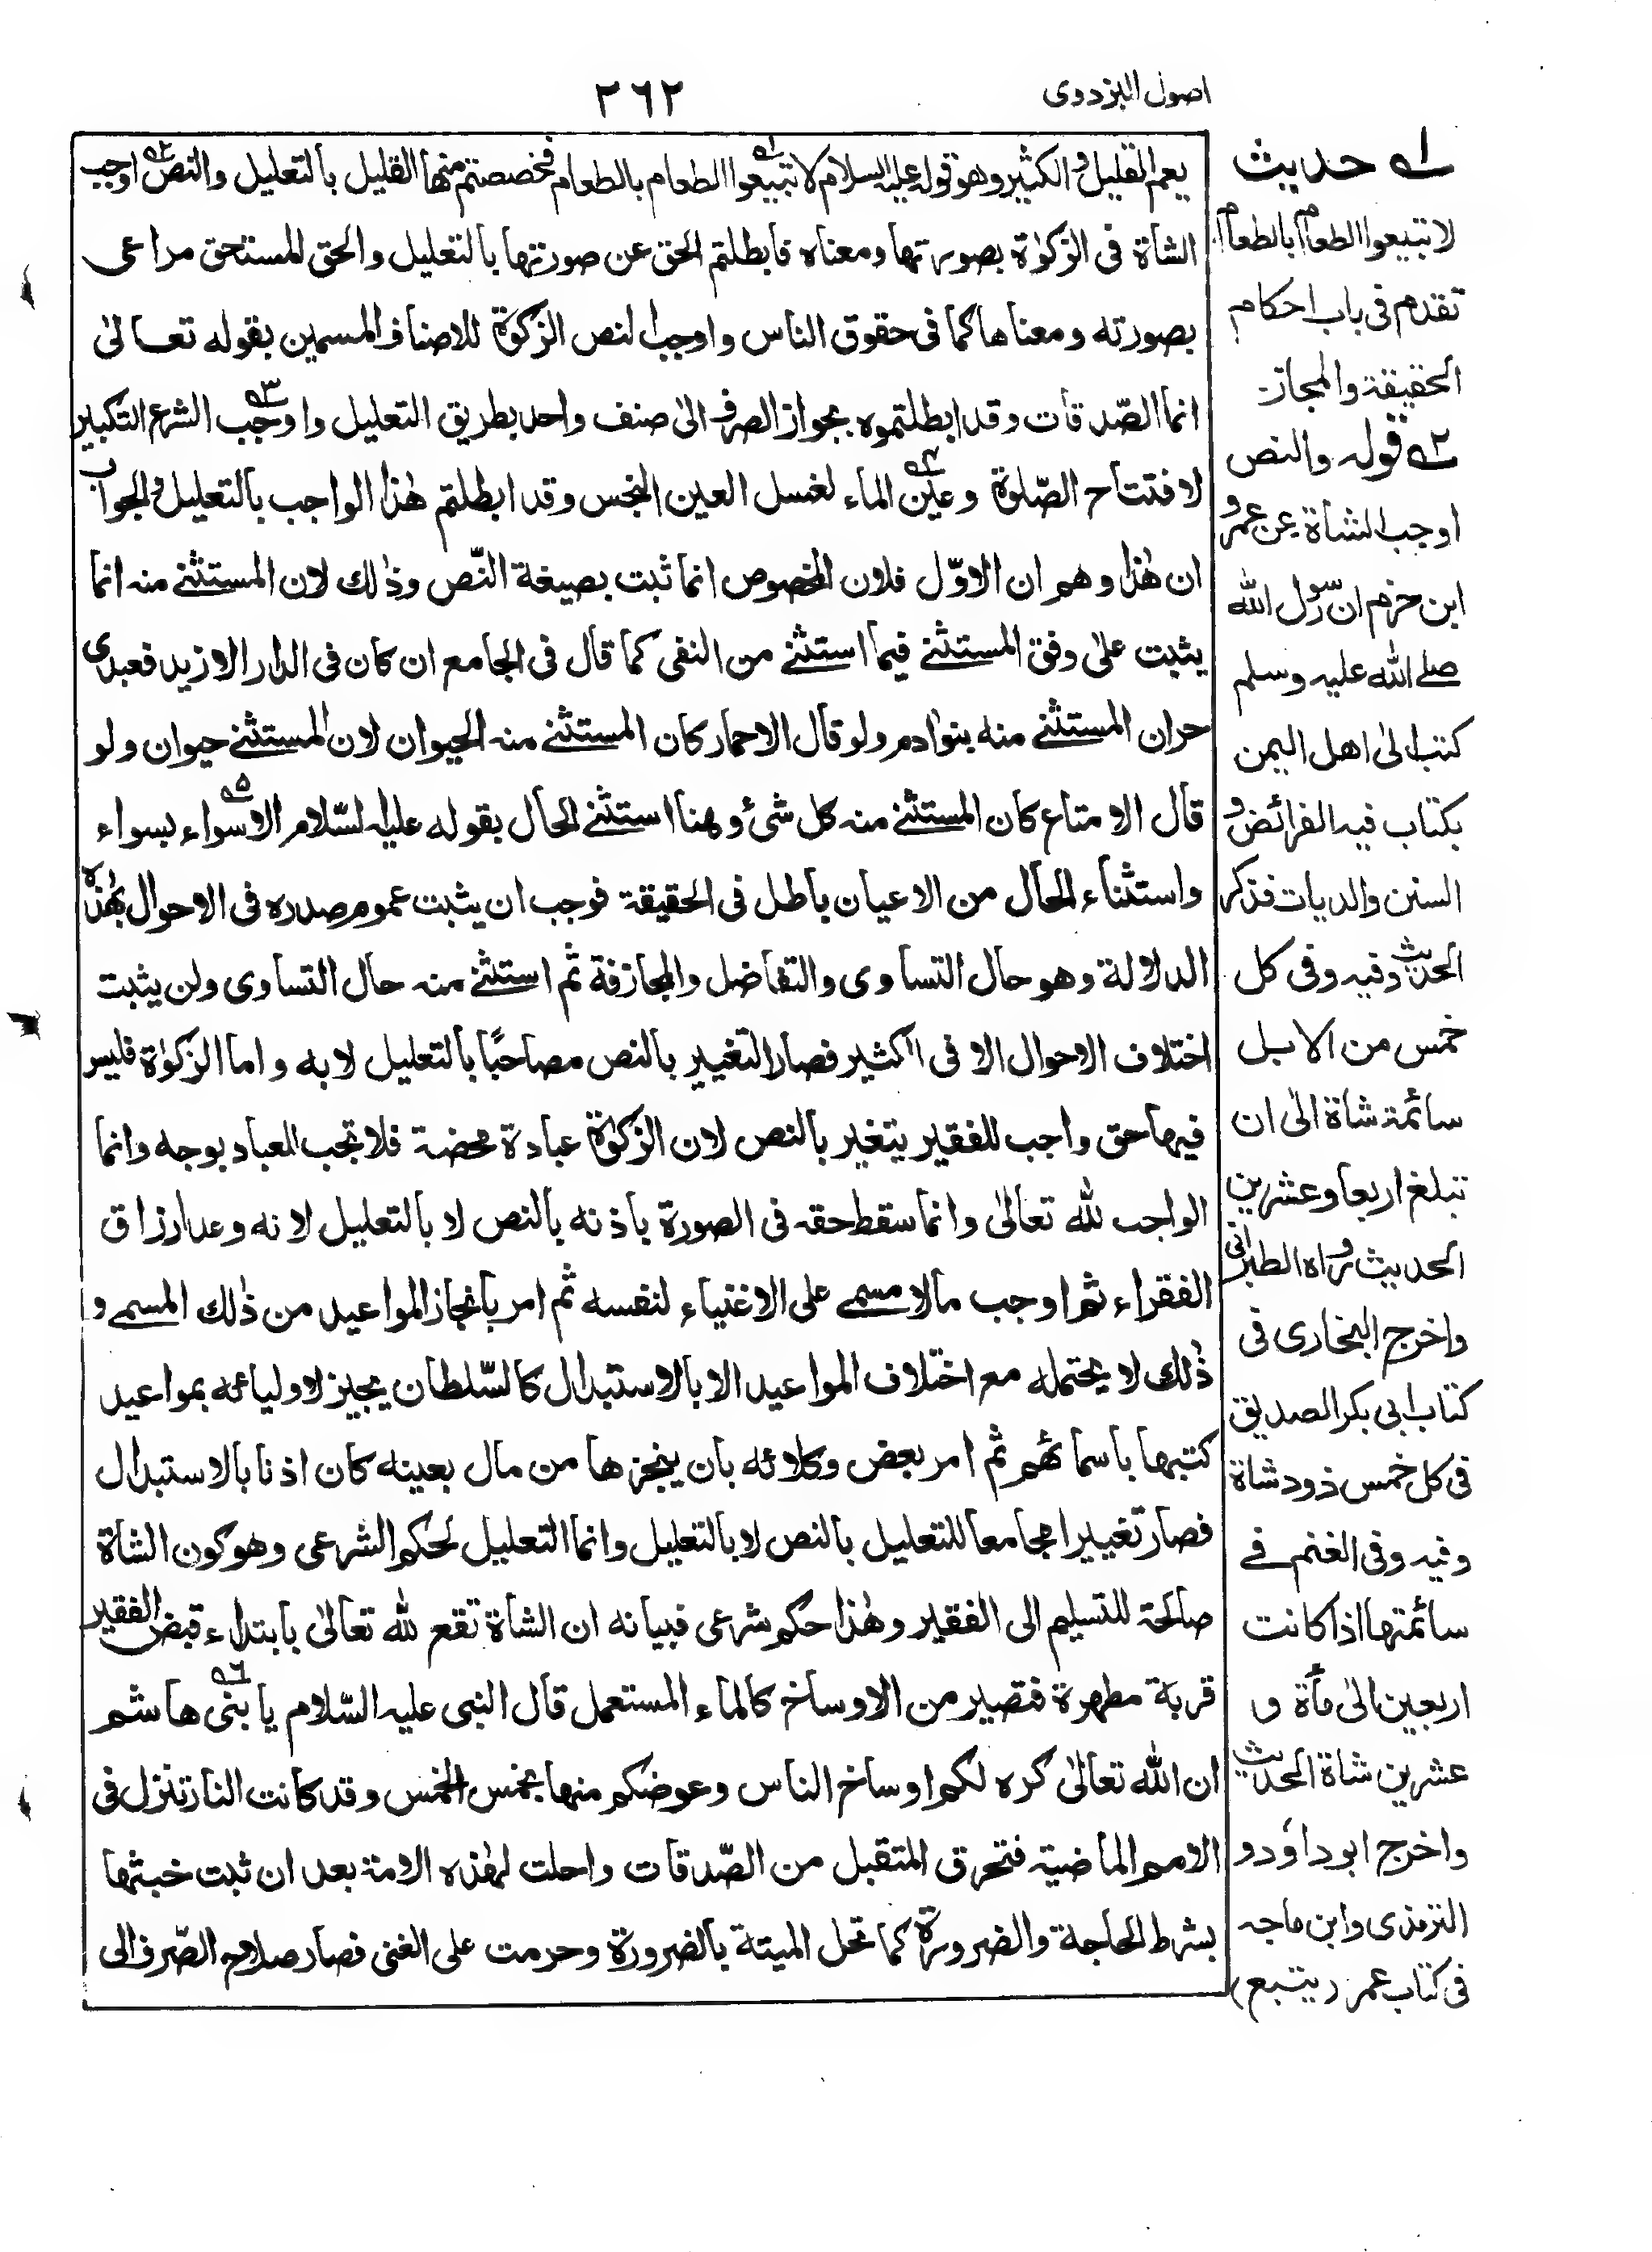 اصول البزدوی
۲۶۲
یعم القلیل والکثیر وهو قوله علیه السلام لا تبیعوا الطعام بالطعام فخصصتم منها القلیل بالتعلیل والنص اوجب
الشاة فی الزکوٰة بصورتها ومعناه فابطلتم الحق عن صورتها بالتعلیل والحق للمستحق مراعی
بصورته ومعناها کما فی حقوق الناس واوجب النص الزکوٰة للاصناف المسمین بقوله تعالیٰ
انما الصّدقات وقد ابطلتموه بجواز الصرف الیٰ صنف واحد بطریق التعلیل واوجب الشرع التکبیر
لافتتاح الصّلوٰة وعین الماء لغسل العین النجس وقد ابطلتم هٰذا الواجب بالتعلیل والجواب
ان هٰذا وهم ان الاوّل فلان الخصوص انما ثبت بصیغة النّص وذٰلك لان المستثنے منه انما
یثبت علیٰ وفق المستثنے فیما استثنے من النفی کما قال فی الجامع ان کان فی الدار الا زید فعبدی
حر ان المستثنے منه بنواٰدم ولو قال الا حمار کان المستثنے منه الحیوان لان المستثنے حیوان ولو
قال الا متاع کان المستثنے منه کل شیٔ وهٰهنا استثنے الحال بقوله علیه السّلام الا سواء بسواء
واستثناء الحال من الاعیان باطل فی الحقیقة فوجب ان یثبت عموم صدره فی الاحوال بهٰذه
الدلالة وهو حال التساوی والتفاضل والمجازفة ثم استثنے منه حال التساوی ولن یثبت
اختلاف الاحوال الا فی الکثیر فصار التغییر بالنص مصاحبًا بالتعلیل لا به واما الزکوٰة فلیس
فیها حق واجب للفقیر یتغیر بالنص لان الزکوٰة عبادة محضة فلا تجب للعباد بوجه وانما
الواجب لله تعالیٰ وانما سقط حقه فی الصورة باذنه بالنص لا بالتعلیل لانه وعد ارزاق
الفقراء ثم اوجب مالا مسمے علی الاغنیاء لنفسه ثم امر بانجاز المواعید من ذٰلك المسمے و
ذٰلك لا یحتمله مع اختلاف المواعید الا بالاستبدال کالسّلطان یجیز لاولیائه بمواعید
کتبها باسمائهم ثم امر بعض وکلائه بان ینجزها من مال بعینه کان اذنا بالاستبدال
فصار تغییرا مجامعا للتعلیل بالنص لا بالتعلیل وانما التعلیل لحکم الشرعی وهو کون الشاة
صالحة للتسلیم الی الفقیر وهٰذا حکم شرعی فبیانه ان الشاة تقع لله تعالیٰ بابتداء قبض الفقیر
قربة مطهرة فتصیر من الاوساخ کالماء المستعمل قال النبی علیه السّلام یا بنی هاشم
ان الله تعالیٰ کره لکم اوساخ الناس وعوضکم منها بخمس الخمس وقد کانت النار تنزل فی
الامم الماضیة فتحرق المتقبل من الصّدقات واحلت لهٰذه الامة بعد ان ثبت خبثها
بشرط الحاجة والضرورة کما تحل المیتة بالضرورة وحرمت علی الغنی فصار صلاح الصّرف الی
۱ حدیث
لا تبیعوا الطعام بالطعام
تقدم فی باب احکام
الحقیقة والمجاز
۲ قوله والنص
اوجب الشاة عن عمرو
ابن حزم ان رسول الله
صلے الله علیه وسلم
کتب الیٰ اهل الیمن
بکتاب فیه الفرائض و
السنن والدیات فذکر
الحدیث وفیه وفی کل
خمس من الابل
سائمة شاة الیٰ ان
تبلغ اربعا وعشرین
الحدیث رواه الطبرانی
واخرج البخاری فی
کتاب ابی بکر الصدیق
فی کل خمس ذود شاة
وفیه وفی الغنم فے
سائمتها اذا کانت
اربعین الیٰ مأة و
عشرین شاة الحدیث
واخرج ابو داؤد و
الترمذی وابن ماجه
فی کتاب عمر (یتبع)